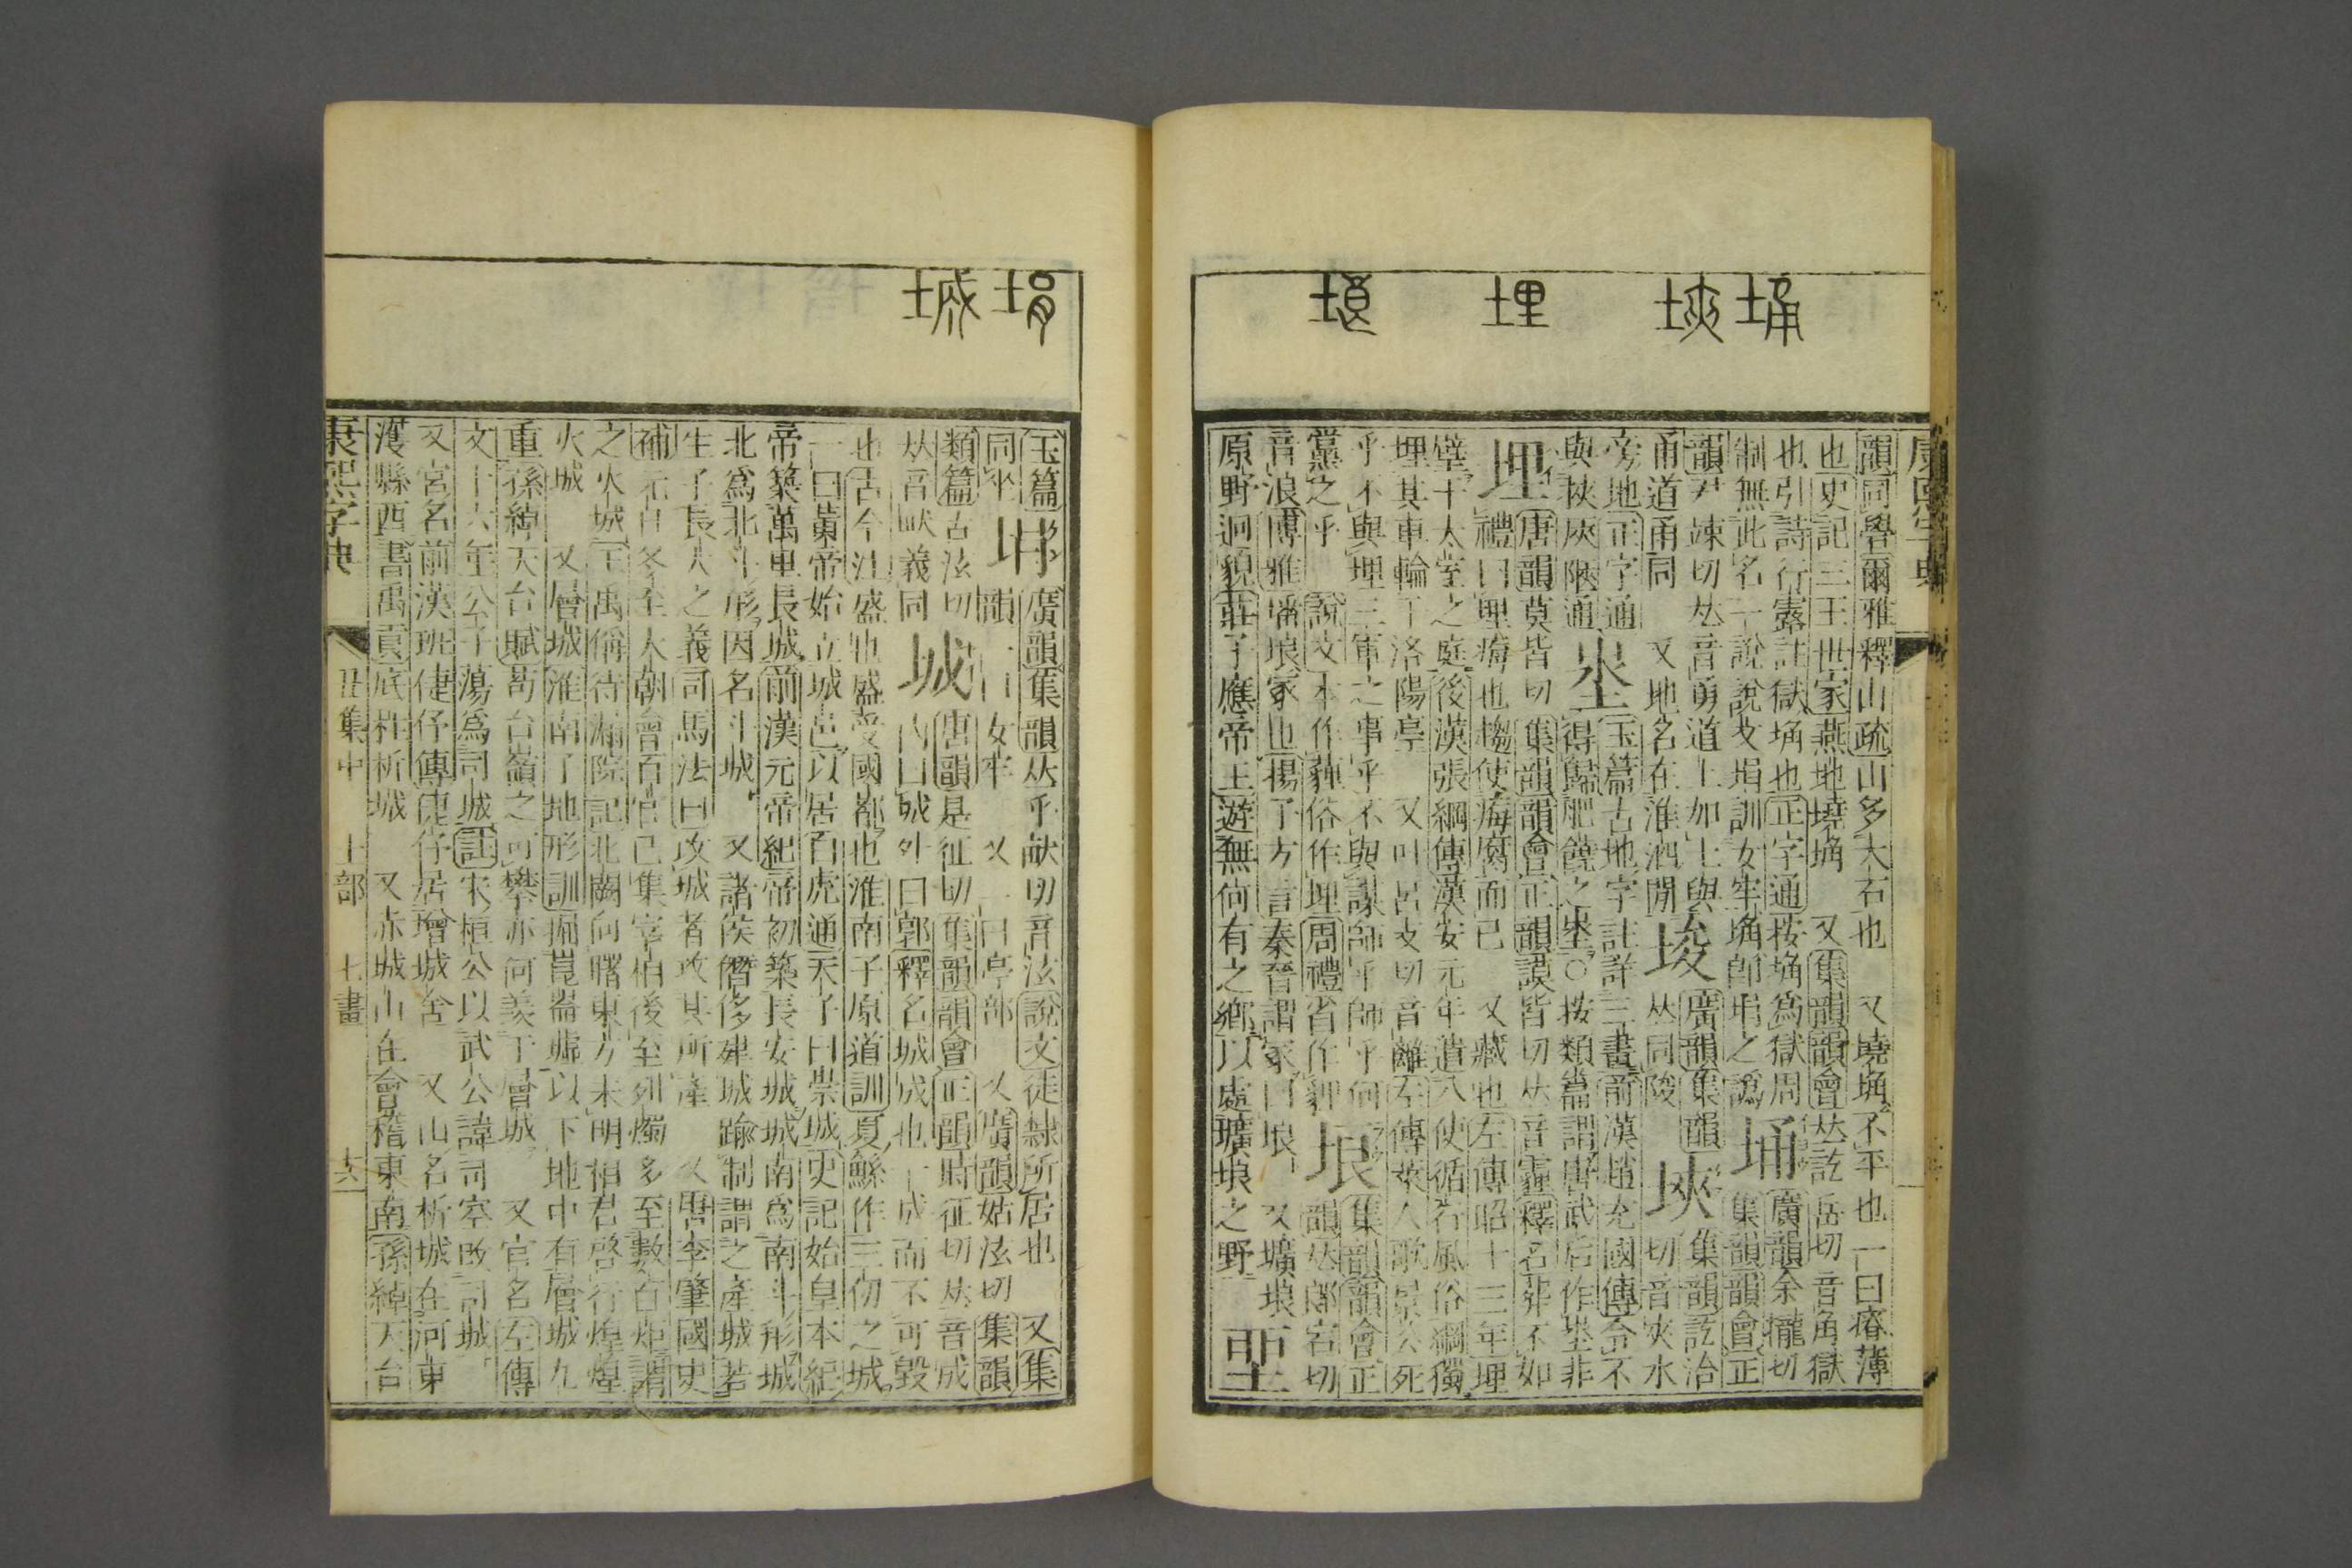 埇
埉
埋
埌
康熙字典
韻同礐爾雅釋山疏山多大石也 又墝埆不平也一曰瘠薄
也史記三王世家燕地墝埆 又集韻韻會𠀤訖岳切音角獄
也引詩行露註獄埆也正字通按埆爲獄周 埇 廣韻余隴切
制無此名一說說文埍訓女牢埆卽埍之譌 集韻韻會正
韻尹竦切𠀤音勇道上加土與 埈 廣韻集韻 埉 集韻訖洽
甬道甬同 又地名在淮泗閒 𠀤同陵 切音夾水
旁地正字通 埊 玉篇古地字註詳三畫前漢趙充國傳令不
與狹陜陿通 得歸肥饒之埊○按類篇謂唐武后作埊非
埋 唐韻莫皆切集韻韻會正韻謨皆切𠀤音霾釋名葬不如
禮曰埋痗也趨使痗腐而已 又藏也左傳昭十三年埋
璧于太室之庭後漢張綱傳漢安元年遣八使循行風俗綱獨
埋其車輪于洛陽亭 又叶呂支切音離左傳萊人歌景公死
乎不與埋三軍之事乎不與謀師乎師乎何 埌 集韻韻會正
黨之乎 說文本作薶俗作埋周禮省作貍 韻𠀤郞宕切
音浪博雅墦埌冢也揚子方言秦晉謂冢曰埌 又壙埌
原野迥貌莊子應帝王遊無何有之鄕以處壙埌之野 垔
埍
城
玉篇 垹 廣韻集韻𠀤乎畎切音泫說文徒隸所居也 又集
同坢 韻一曰女牢 又一曰亭部 又廣韻姑泫切集韻
類篇古泫切 城 唐韻是征切集韻韻會正韻時征切𠀤音成
𠀤音畎義同 內曰城外曰郭釋名城成也一成而不可毀
也古今注盛也盛受國都也淮南子原道訓夏鯀作三仞之城
一曰黃帝始立城邑以居白虎通天子曰崇城史記始皇本紀
帝築萬里長城前漢元帝紀帝初築長安城城南爲南斗形城
北爲北斗形因名斗城 又諸侯僭侈建城踰制謂之產城若
生子長大之義司馬法曰攻城者攻其所產 又唐李肇國史
補元日冬至大朝會百官已集宰相後至列燭多至數百炬謂
之火城王禹偁待漏院記北闕向曙東方未明相君啓行煌煌
火城 又層城淮南子地形訓掘崑崙墟以下地中有層城九
重孫綽天台賦苟台嶺之可攀亦何羨于層城 又官名左傳
文十六年公子蕩爲司城註宋桓公以武公諱司空改司城
又宮名前漢班倢伃傳倢伃居增城舍 又山名析城在河東
濩縣西書禹貢厎柱析城 又赤城山在會稽東南孫綽天台
康熙字典 丑集中 土部 七畫 六